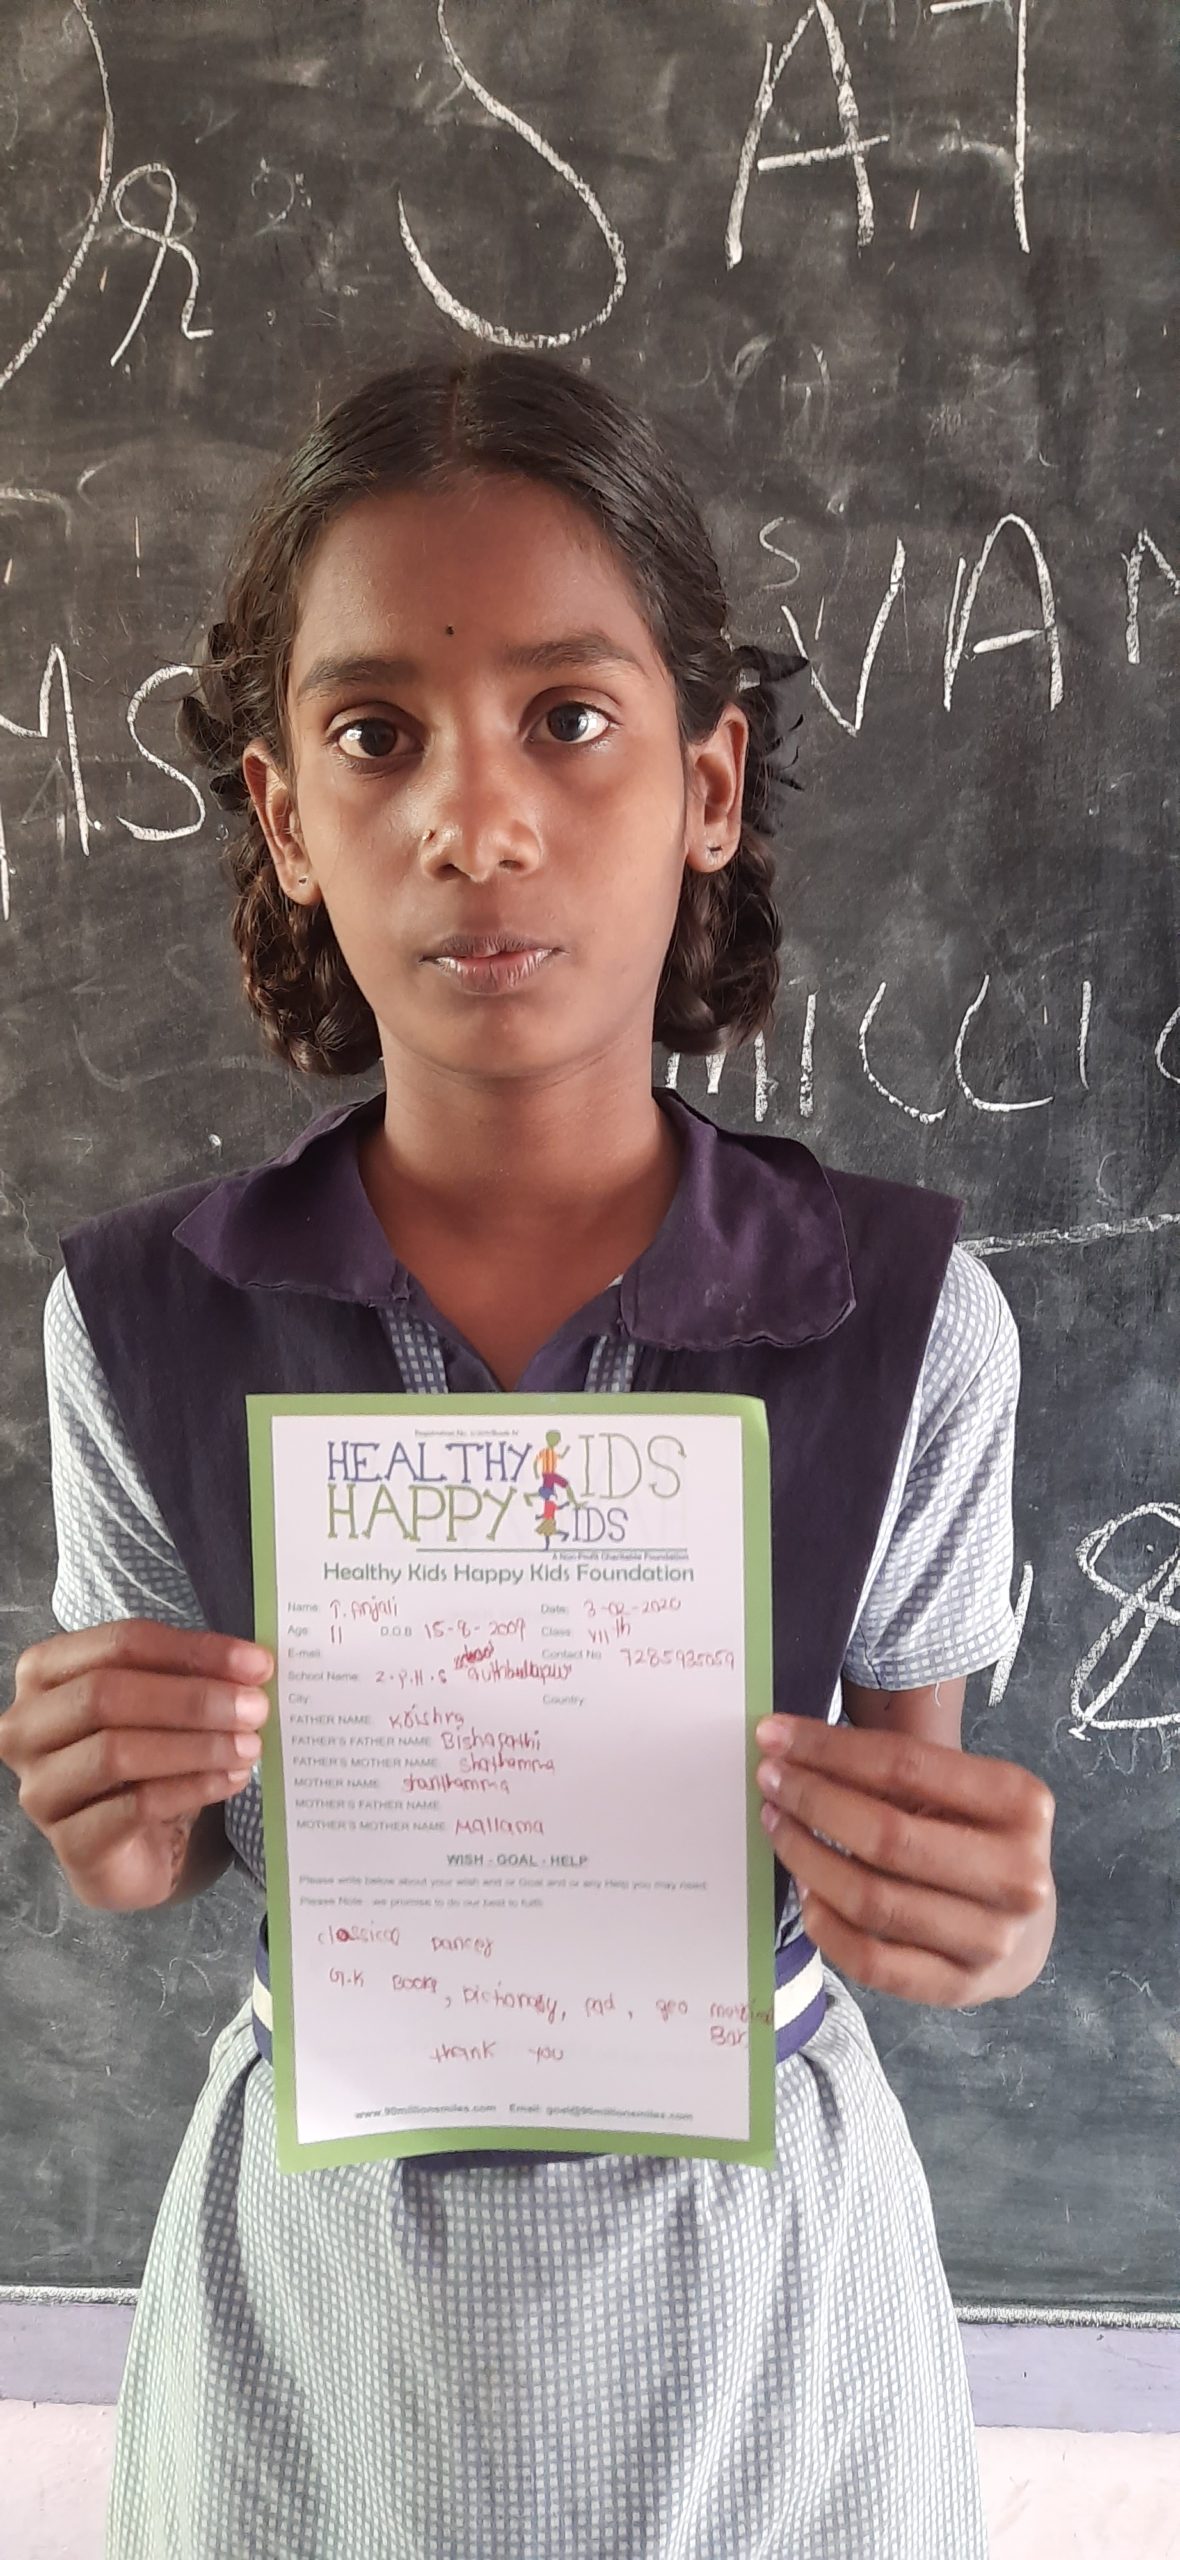 SAT
MS
VAN
MICCIO
18
HEALTHY KIDS
HAPPY KIDS
A Non Profit Charitable Foundation
Healthy Kids Happy Kids Foundation
Name: T. Anjali Date: 3-02-2020
Age: 11 D.O.B 15-8-2009 Class: VII th
E-mail: Contact No 7285935059
School Name: Z.P.H.S
City: Country:
FATHER NAME: Krishna
FATHER'S FATHER NAME: Bishapathi
FATHER'S MOTHER NAME: Shathamma
MOTHER NAME: Shanthamma
MOTHER'S FATHER NAME:
MOTHER'S MOTHER NAME: Mallama
WISH - GOAL - HELP
Please write below about your wish and or Goal and or any Help you may need.
Please Note: we promise to do our best to fulfil
classical Dancer
G.K Books, Dictionary, pad, geo
Box
thank you
www.90millionsmiles.com Email: goal@90millionsmiles.com